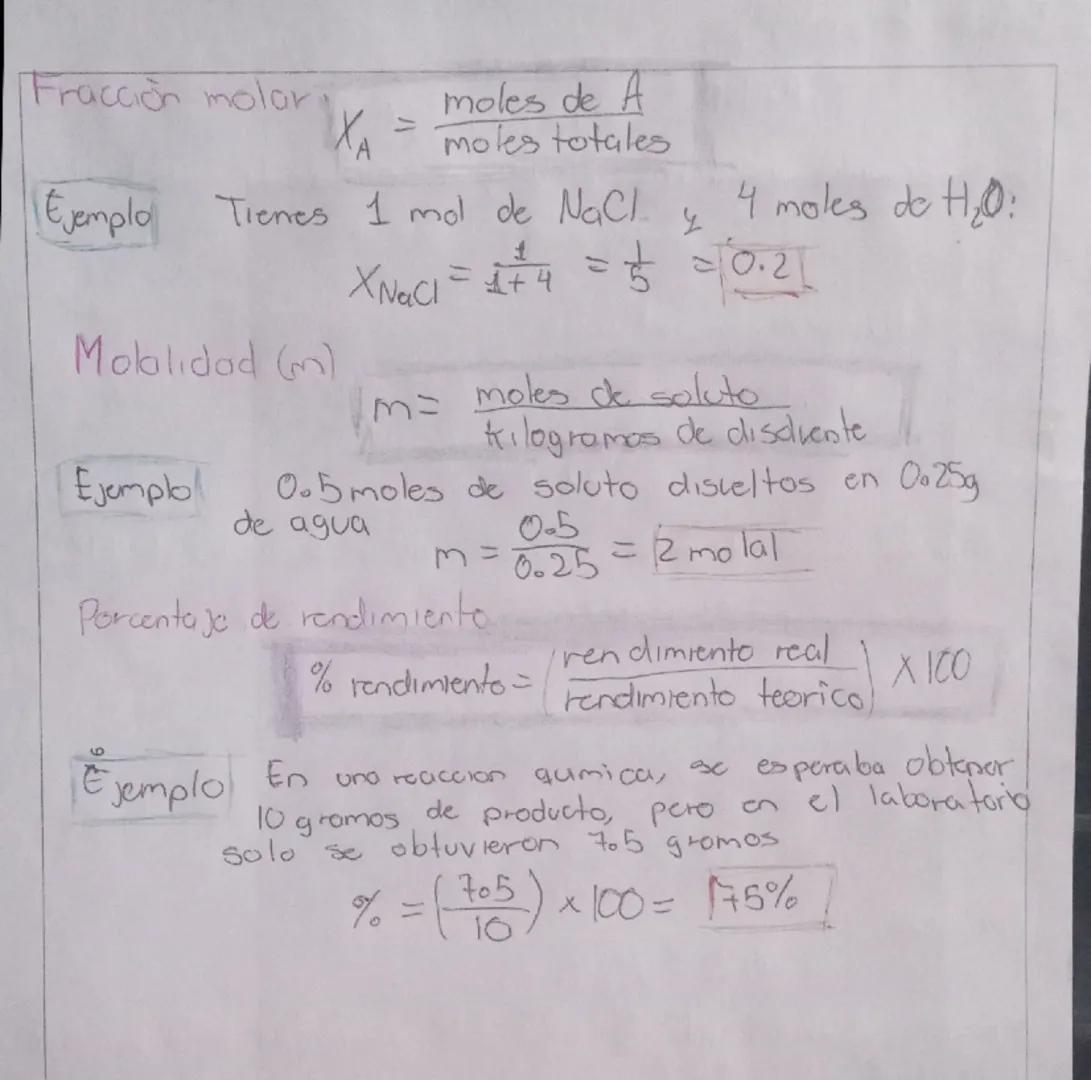 Fracción molar:
X_A = moles de A / moles totales
Ejemplo Tienes 1 mol de NaCl y 4 moles de H₂O:
X_NaCl = 1/1+4 = 1/5 = 0.2
Molalidad (m)
m = moles de soluto / kilogramos de disolvente
Ejemplo 0.5 moles de soluto disueltos en 0.25g
de agua
m = 0.5/0.25 = 2 molal
Porcentaje de rendimiento
% rendimiento = (rendimiento real / rendimiento teorico) x 100
Ejemplo En una reaccion qumica, se esperaba obtener
10 gramos de producto, pero en el laboratorio
solo se obtuvieron 7.5 gramos
% = (7.5/10) x 100 = 75%